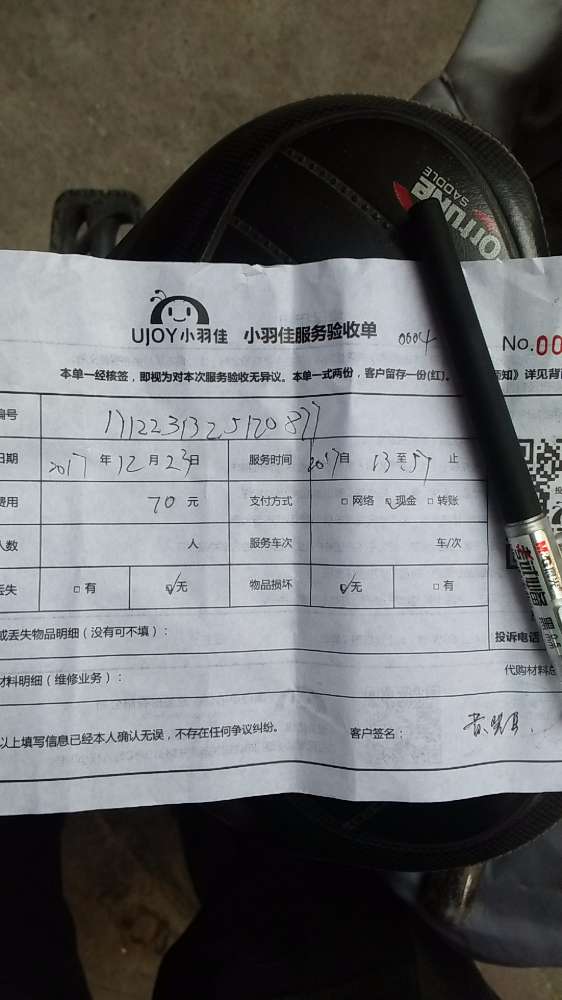 FORTUNE
SADDLE
UJOY小羽佳 小羽佳服务验收单 0004 No.00
本单一经核签，即视为对本次服务验收无异议。本单一式两份，客户留存一份(红)。 知》详见背
编号
日期 2017 年 12 月 23 日 服务时间 2017 自 13 至 57 止
费用 70 元 支付方式 □ 网络 ☑ 现金 □ 转账
人数 人 服务车次 车/次
丢失 □ 有 ☑ 无 物品损坏 ☑ 无 □ 有
或丢失物品明细（没有可不填）： 投诉电话
材料明细（维修业务）： 代购材料总
以上填写信息已经本人确认无误，不存在任何争议纠纷。 客户签名：
M&G